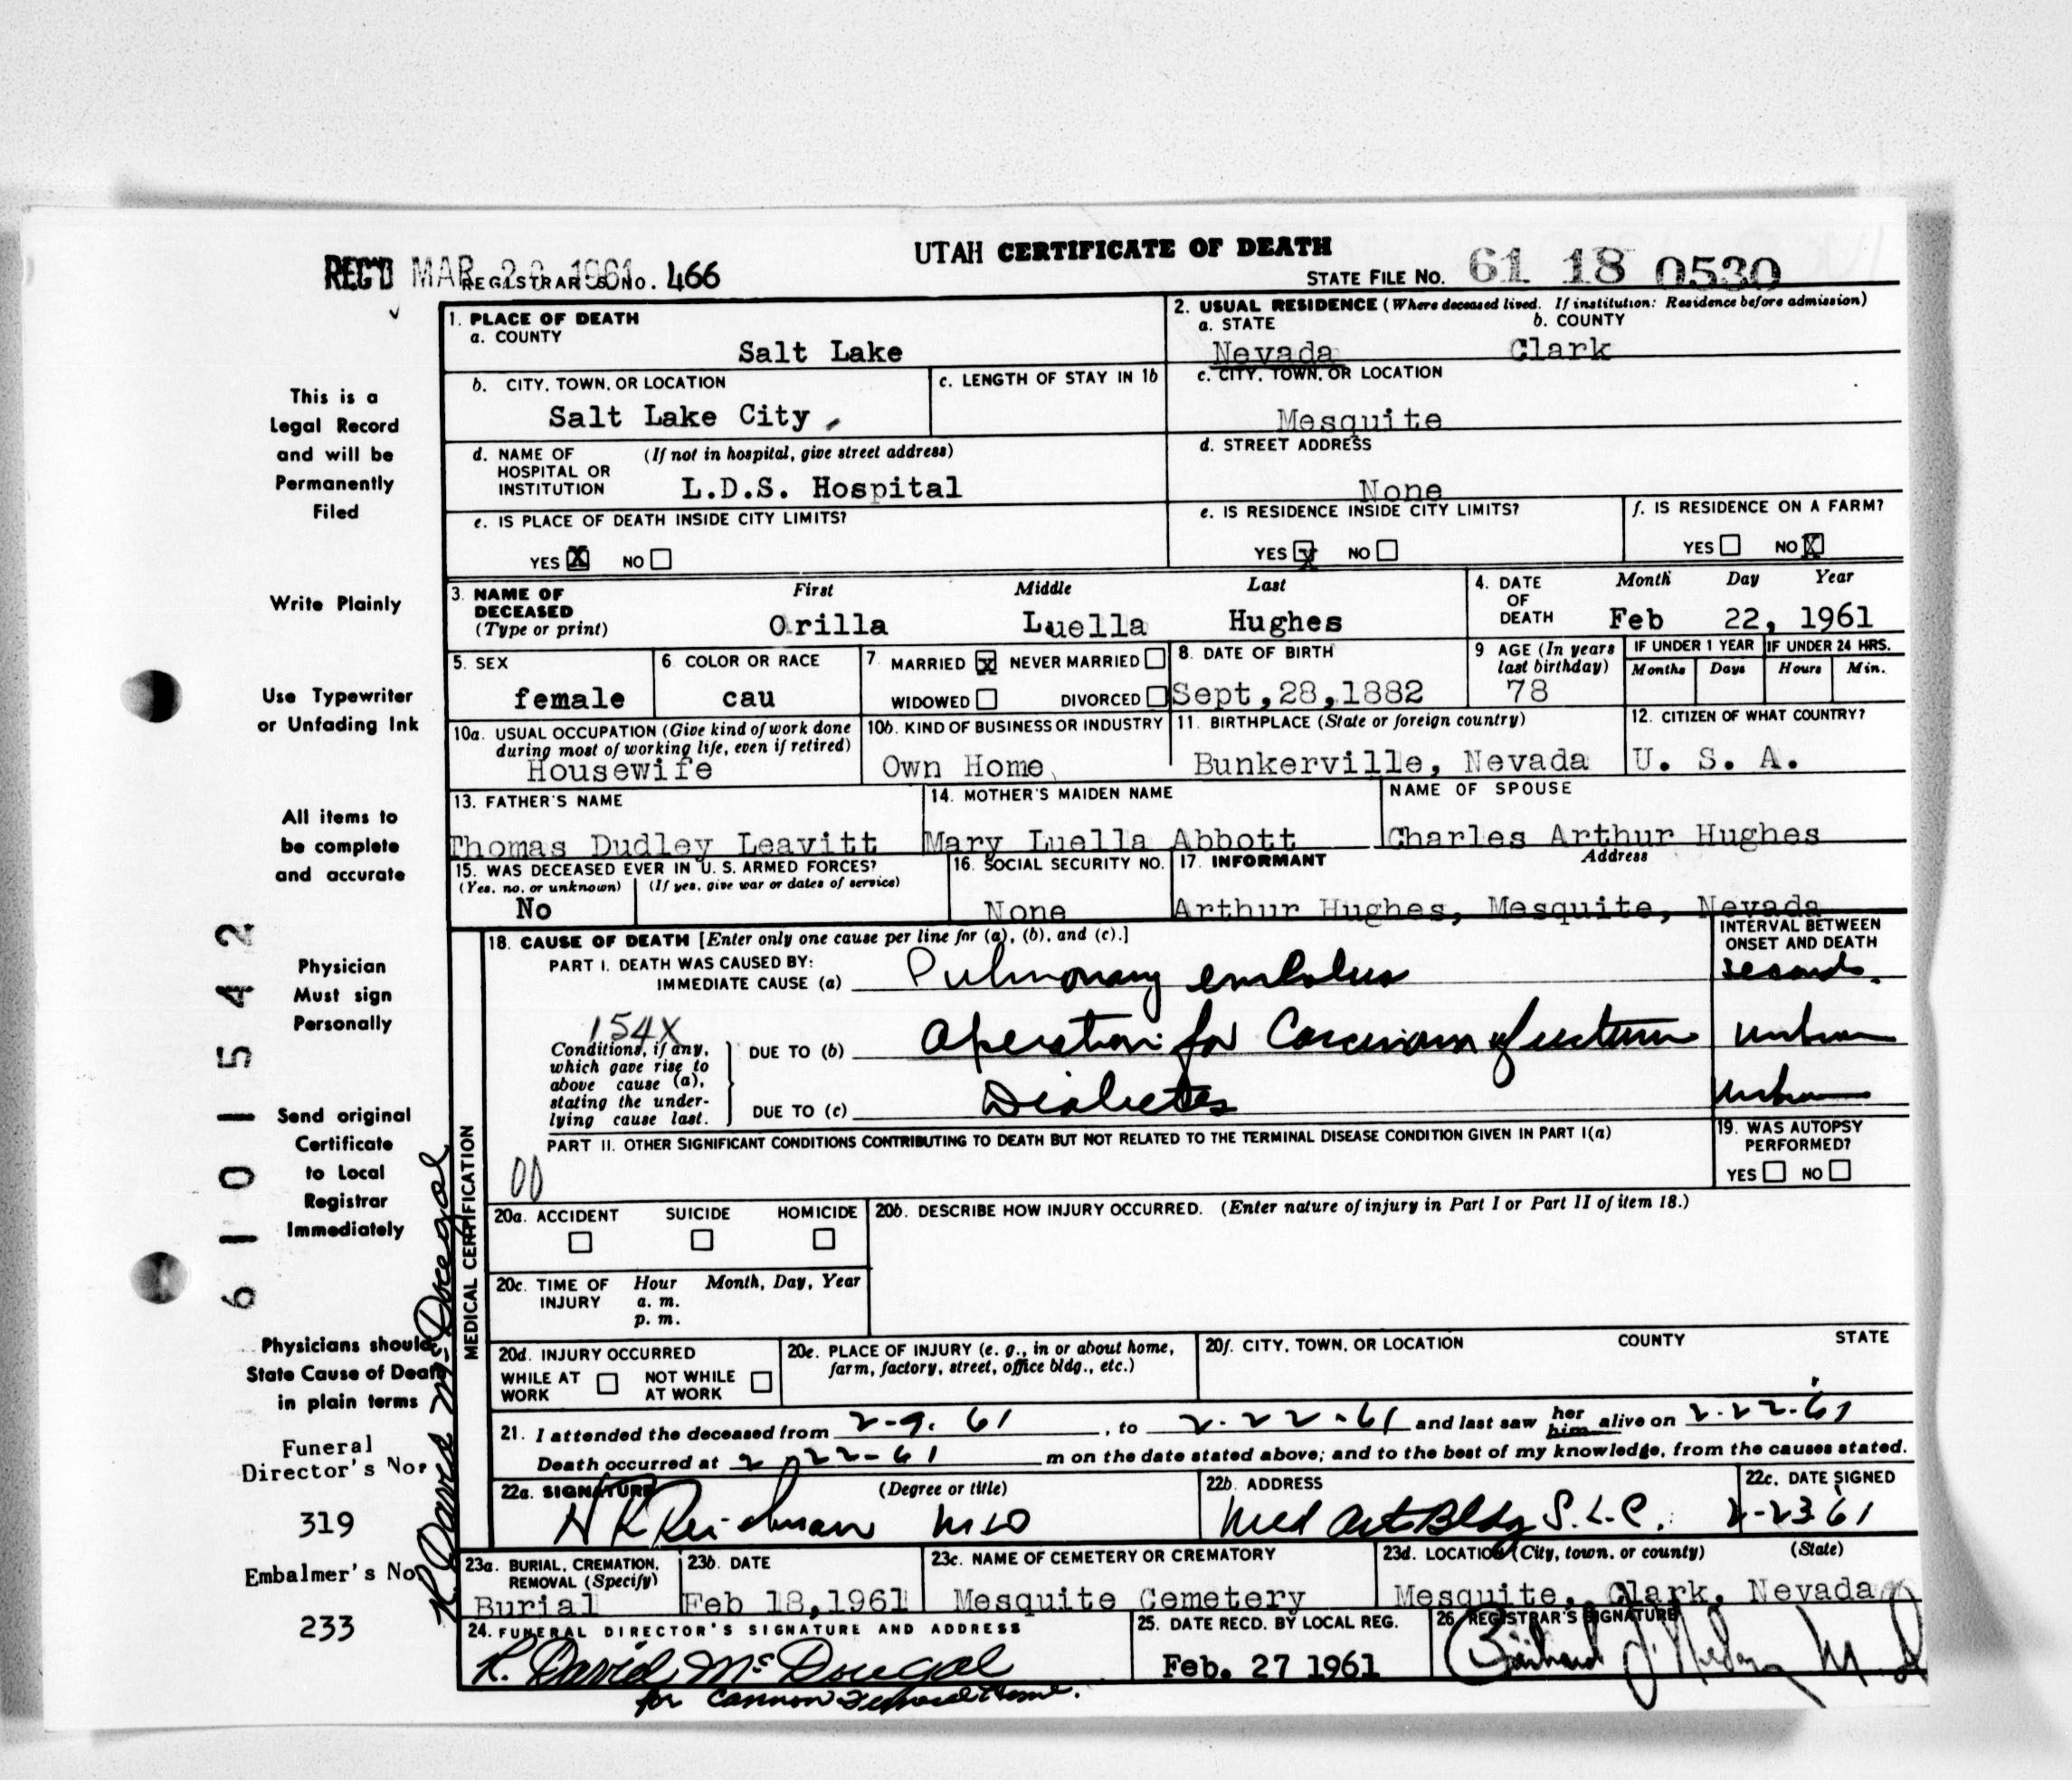 UTAH CERTIFICATE OF DEATH
REC'D MAR 20 1961 REGISTRAR'S NO. 466
STATE FILE NO. 61 18 0530
1. PLACE OF DEATH
a. COUNTY
Salt Lake
2. USUAL RESIDENCE (Where deceased lived. If institution: Residence before admission)
a. STATE b. COUNTY
Nevada Clark
b. CITY, TOWN, OR LOCATION
Salt Lake City
c. LENGTH OF STAY IN 1b
c. CITY, TOWN, OR LOCATION
Mesquite
d. NAME OF HOSPITAL OR INSTITUTION (If not in hospital, give street address)
L.D.S. Hospital
d. STREET ADDRESS
None
e. IS PLACE OF DEATH INSIDE CITY LIMITS?
YES X NO
e. IS RESIDENCE INSIDE CITY LIMITS?
YES X NO
f. IS RESIDENCE ON A FARM?
YES NO X
3. NAME OF DECEASED (Type or print)
First Middle Last
Orilla Luella Hughes
4. DATE OF DEATH Month Day Year
Feb 22, 1961
5. SEX
female
6. COLOR OR RACE
cau
7. MARRIED X NEVER MARRIED
WIDOWED DIVORCED
8. DATE OF BIRTH
Sept,28,1882
9 AGE (In years last birthday)
78
IF UNDER 1 YEAR IF UNDER 24 HRS.
Months Days Hours Min.
10a. USUAL OCCUPATION (Give kind of work done during most of working life, even if retired)
Housewife
10b. KIND OF BUSINESS OR INDUSTRY
Own Home
11. BIRTHPLACE (State or foreign country)
Bunkerville, Nevada
12. CITIZEN OF WHAT COUNTRY?
U. S. A.
13. FATHER'S NAME
Thomas Dudley Leavitt
14. MOTHER'S MAIDEN NAME
Mary Luella Abbott
NAME OF SPOUSE
Charles Arthur Hughes
15. WAS DECEASED EVER IN U. S. ARMED FORCES?
(Yes, no, or unknown) (If yes, give war or dates of service)
No
16. SOCIAL SECURITY NO.
None
17. INFORMANT Address
Arthur Hughes, Mesquite, Nevada
MEDICAL CERTIFICATION
18. CAUSE OF DEATH [Enter only one cause per line for (a), (b), and (c).]
INTERVAL BETWEEN ONSET AND DEATH
PART I. DEATH WAS CAUSED BY:
IMMEDIATE CAUSE (a) Pulmonary embolus seconds.
154X
Conditions, if any, which gave rise to above cause (a), stating the underlying cause last.
DUE TO (b) Operation for Carcinoma of rectum unknown
DUE TO (c) Diabetes unknown
PART II. OTHER SIGNIFICANT CONDITIONS CONTRIBUTING TO DEATH BUT NOT RELATED TO THE TERMINAL DISEASE CONDITION GIVEN IN PART I(a)
00
19. WAS AUTOPSY PERFORMED?
YES NO
20a. ACCIDENT SUICIDE HOMICIDE
20b. DESCRIBE HOW INJURY OCCURRED. (Enter nature of injury in Part I or Part II of item 18.)
20c. TIME OF INJURY Hour Month, Day, Year
a. m.
p. m.
20d. INJURY OCCURRED
WHILE AT WORK NOT WHILE AT WORK
20e. PLACE OF INJURY (e. g., in or about home, farm, factory, street, office bldg., etc.)
20f. CITY, TOWN, OR LOCATION COUNTY STATE
21. I attended the deceased from 2-9. 61, to 2-22-61 and last saw her him alive on 2-22-61
Death occurred at 2 22-61 m on the date stated above; and to the best of my knowledge, from the causes stated.
22a. SIGNATURE (Degree or title)
MD
22b. ADDRESS
Med Art Bldg S.L.C.
22c. DATE SIGNED
2-23 61
23a. BURIAL, CREMATION, REMOVAL (Specify)
Burial
23b. DATE
Feb 18,1961
23c. NAME OF CEMETERY OR CREMATORY
Mesquite Cemetery
23d. LOCATION (City, town, or county) (State)
Mesquite, Clark, Nevada
24. FUNERAL DIRECTOR'S SIGNATURE AND ADDRESS
R. David McDougal
for Cannon Funeral Home.
25. DATE RECD. BY LOCAL REG.
Feb. 27 1961
26. REGISTRAR'S SIGNATURE
This is a
Legal Record
and will be
Permanently
Filed
Write Plainly
Use Typewriter
or Unfading Ink
All items to
be complete
and accurate
Physician
Must sign
Personally
Send original
Certificate
to Local
Registrar
Immediately
Physicians should
State Cause of Death
in plain terms
Funeral
Director's No.
319
Embalmer's No
233
61015542
R. David McDougal